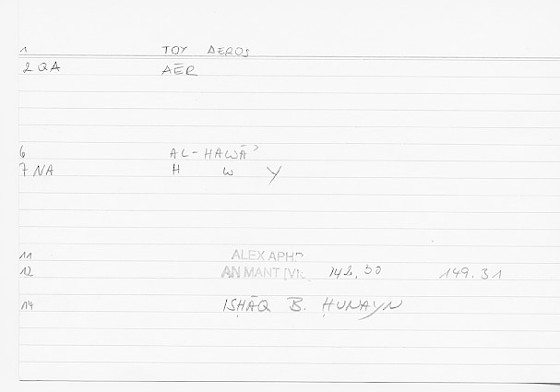 1 TOY AEROS
2 QA AĒR
6 AL-HAWĀʾ
7 NA H W Y
11 ALEX APHR
12 AN MANT [VIL 142,30 149.31
14 ISḤĀQ B. ḤUNAYN